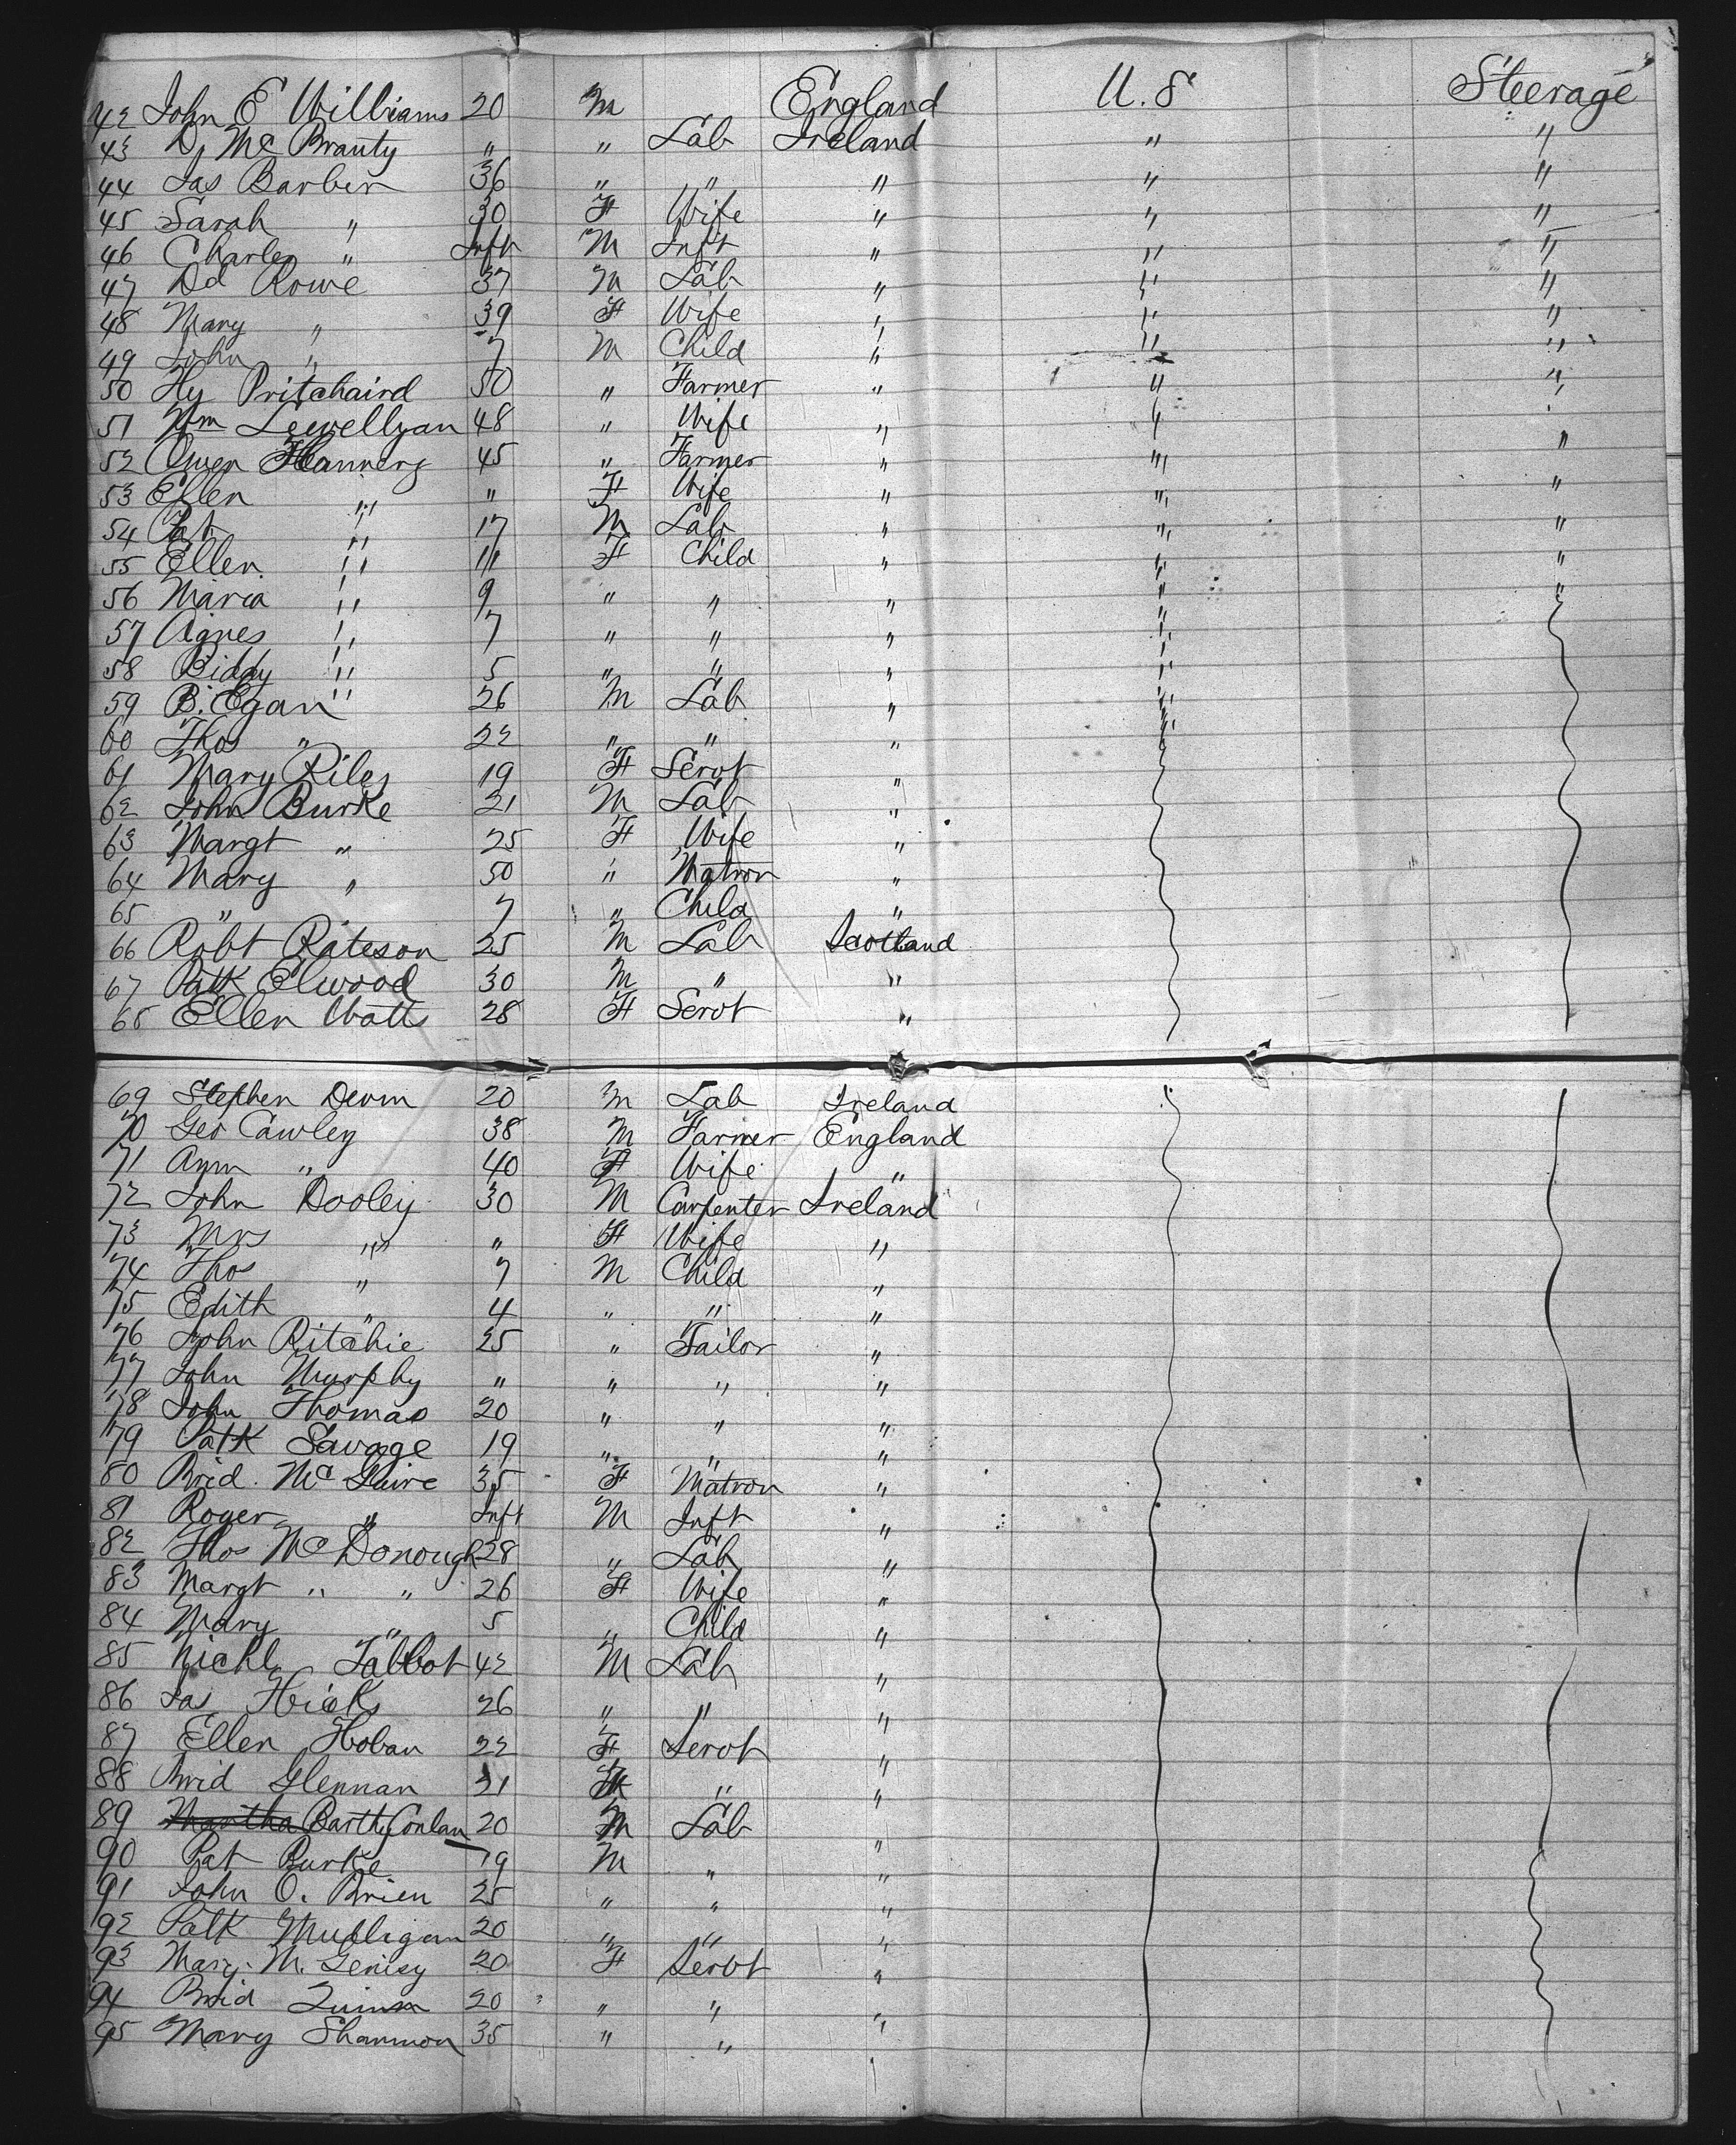 42 John E Williams 20 M England U.S Steerage
43 D, Mc Branty " " Lab Ireland " "
44 Jas Barber 36 " " " " "
45 Sarah " 30 F Wife " " "
46 Charles " Inft M Inft " " "
47 Dd Rowe 37 M Lab " " "
48 Mary " 39 F Wife " " "
49 John " 7 M Child " " "
50 Hy Pritchaird 50 " Farmer " " "
51 Wm Lewellyan 48 " Wife " " "
52 Owen Flannery 45 " Farmer " " "
53 Ellen " " F Wife " " "
54 Pat " 17 M Lab " " "
55 Ellen " 11 F Child " " "
56 Maria " 9 " " " " "
57 Agnes " 7 " " " "
58 Biddy " 5 " " " "
59 B. Egan 26 M Lab " "
60 Thos " 22 " " " "
61 Mary Riley 19 F Servt "
62 John Burke 21 M Lab "
63 Margt " 25 F Wife "
64 Mary " 50 " Matron "
65 " 7 " Child "
66 Robt Rateson 25 M Lab Scotland
67 Patk Elwood 30 M " "
68 Ellen Watts 28 F Servt "
69 Stephen 20 M Lab Ireland
70 Geo Cawley 38 M Farmer England
71 Ann " 40 F Wife "
72 John Dooley 30 M Carpenter Ireland
73 Mrs " " F Wife "
74 Thos " 7 M Child "
75 Edith " 4 " " "
76 John Ritchie 25 " Tailor "
77 John Murphy " " " "
78 John Thomas 20 " " "
79 Patk Savage 19 " " "
80 Brid. Mc Guire 35 F Matron "
81 Roger " Inft M Inft "
82 Thos Mc Donough 28 " Lab "
83 Margt " " 26 F Wife "
84 Mary " 5 " Child "
85 Nichl Talbot 42 M Lab "
86 Jas Hicks 26 " " "
87 Ellen Hoban 22 F Servt "
88 Brid Glennan 21 F " "
89 Martha Barthy Conlan 20 M Lab "
90 Pat Burke 19 M " "
91 John O. Brien 25 " " "
92 Patk Mulligan 20 " " "
93 Mary. M. 20 F Servt "
94 Brid Quinn 20 " " "
95 Mary Shannon 35 " "